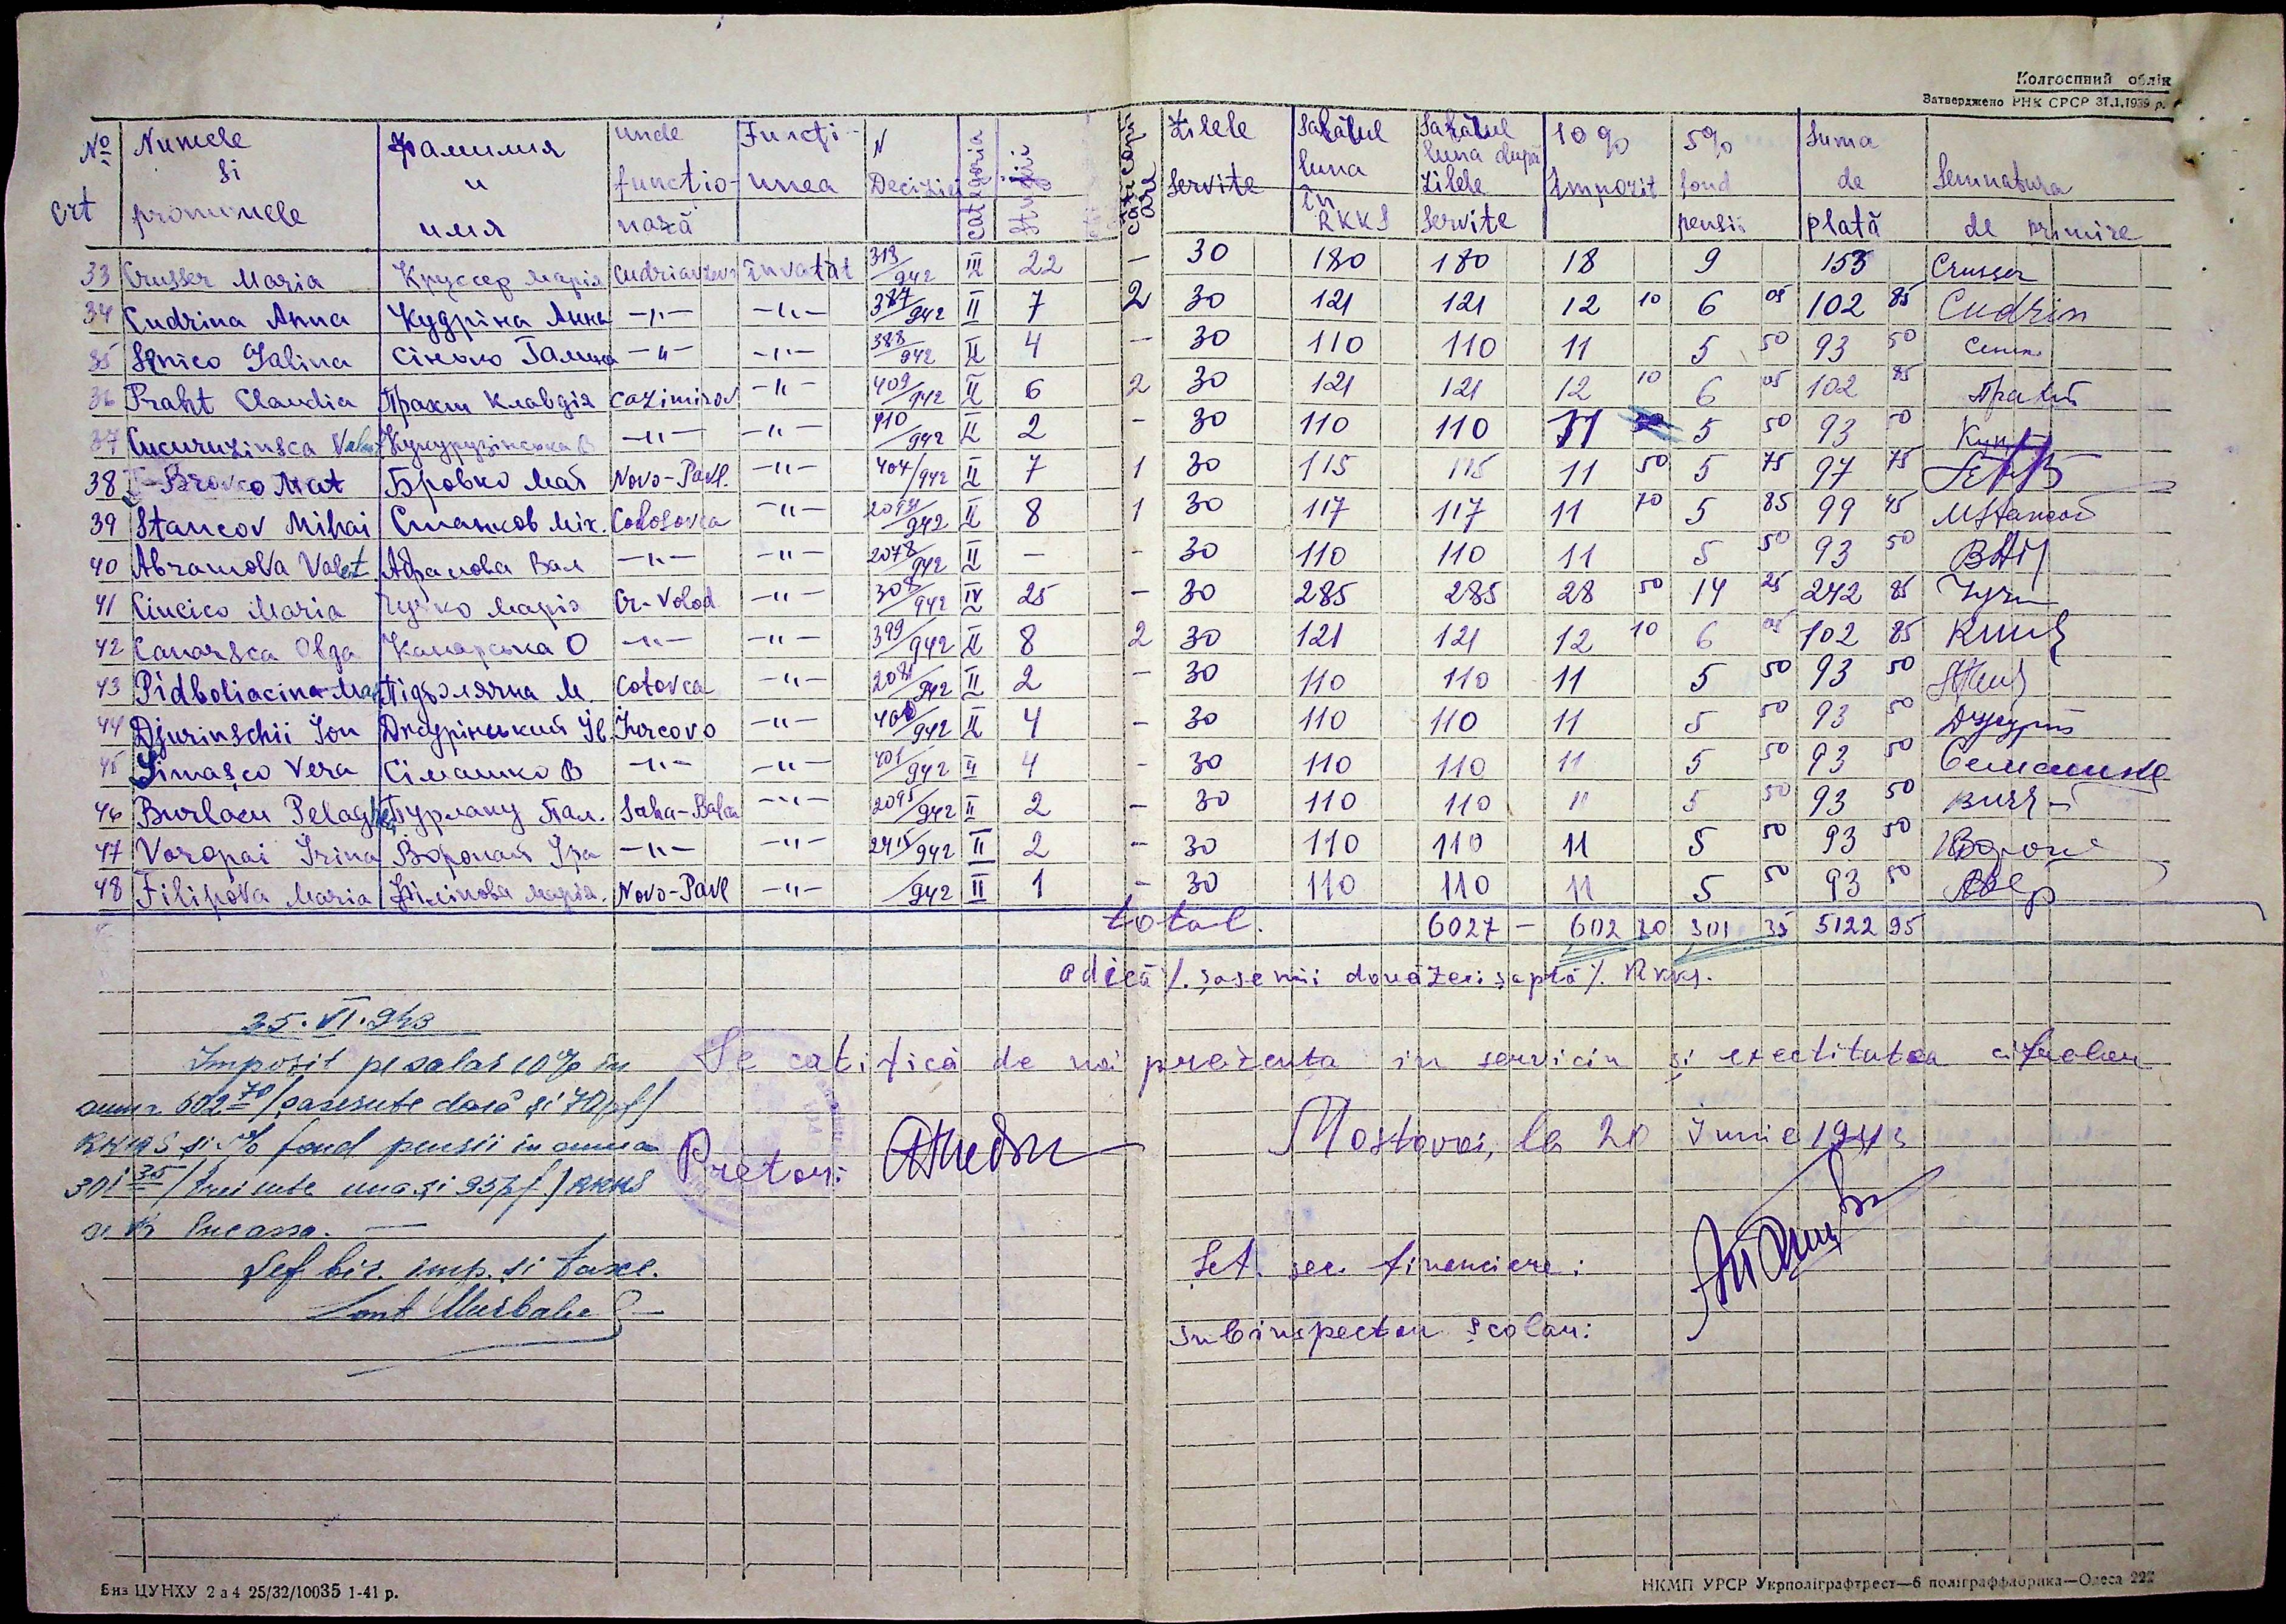 Колгоспний облік
Затверджено РНК СРСР 31.1.1939 р.
№ crt | Numele și pronumele | Фамилия и имя | unde funcționază | Funcțiunea | N Deciziei | categoria | Stagiu | câți copii are | Zilele servite | Salariul luna în RKKS | Salariul luna după zilele servite | 10% Impozit | 5% fond pensii | Suma de plată | Semnatura de primire
33 Crusser Maria Круссер Марія învatăt 313/942 III 22 — 30 180 180 18 9 153 Crusser
34 Cudrina Anna Кудріна Анна —"— —"— 387/942 II 7 2 30 121 121 12 10 6 05 102 85 Cudrin
35 Sinico Galina Сінько Галина —"— —"— 388/942 II 4 — 30 110 110 11 5 50 93 50
36 Praht Claudia Прахт Клавдія Cazimirov —"— 409/942 II 6 2 30 121 121 12 10 6 05 102 85
37 Cucuruzinsca Кукурузінська В —"— —"— 410/942 II 2 — 30 110 110 11 5 50 93 50
38 Brovco Mat Бровко Мат Novo-Pavl. —"— 404/942 II 7 1 30 115 115 11 50 5 75 97 75
39 Stancov Mihai Станков Міх. Colosovca —"— 942 II 8 1 30 117 117 11 70 5 85 99 45 MStancov
40 Abramova Valent Абрамова Вал —"— —"— 2078/942 II — — 30 110 110 11 5 50 93 50
41 Ciucico Maria Марія Cr-Volod —"— 308/942 IV 25 — 30 285 285 28 50 14 25 242 85
42 Canarsca Olga Канарська О —"— —"— 399/942 II 8 2 30 121 121 12 10 6 05 102 85
43 Pidboliacina Mar Підболячна М Cotovca —"— 942 II 2 — 30 110 110 11 5 50 93 50
44 Djurinschii Ion Джурінський Ів. Jurcovo —"— 942 II 4 — 30 110 110 11 5 50 93 50
45 Simașco Vera Сімашко В —"— —"— 401/942 II 4 — 30 110 110 11 5 50 93 50
46 Burlacu Pelaghe Бурлаку Пал. Saha-Balca —"— 2095/942 II 2 — 30 110 110 11 5 50 93 50
47 Voropai Irina Воропай Іра —"— —"— 2415/942 II 2 — 30 110 110 11 5 50 93 50
48 Filipova Maria Філіпова Марія. Novo-Pavl —"— /942 II 1 — 30 110 110 11 5 50 93 50
total. 6027 — 602 70 301 35 5122 95
adică /. șasemii douăzeci șaptă /. Rkks.
25.VI.943
Impozit pe salar 10% în
suma 602 70 / șasesute două și 70 pf /
RKKS și 5% fond pensii in suma
301 35 / trei sute una și 35 pf / RKKS
Incassa. —
Șef bir. imp. și taxe.
Se certifică de noi prezența in serviciu și exectitatea cifrelor
Mostovoi, la 20 Iunie 1943
Pretor:
Șef. sec. financiare:
Subinspector școlar:
Биз ЦУНХУ 2 а 4 25/32/10035 1-41 р.
НКМП УРСР Укрполіграфтрест—6 поліграффабрика—Одеса 222